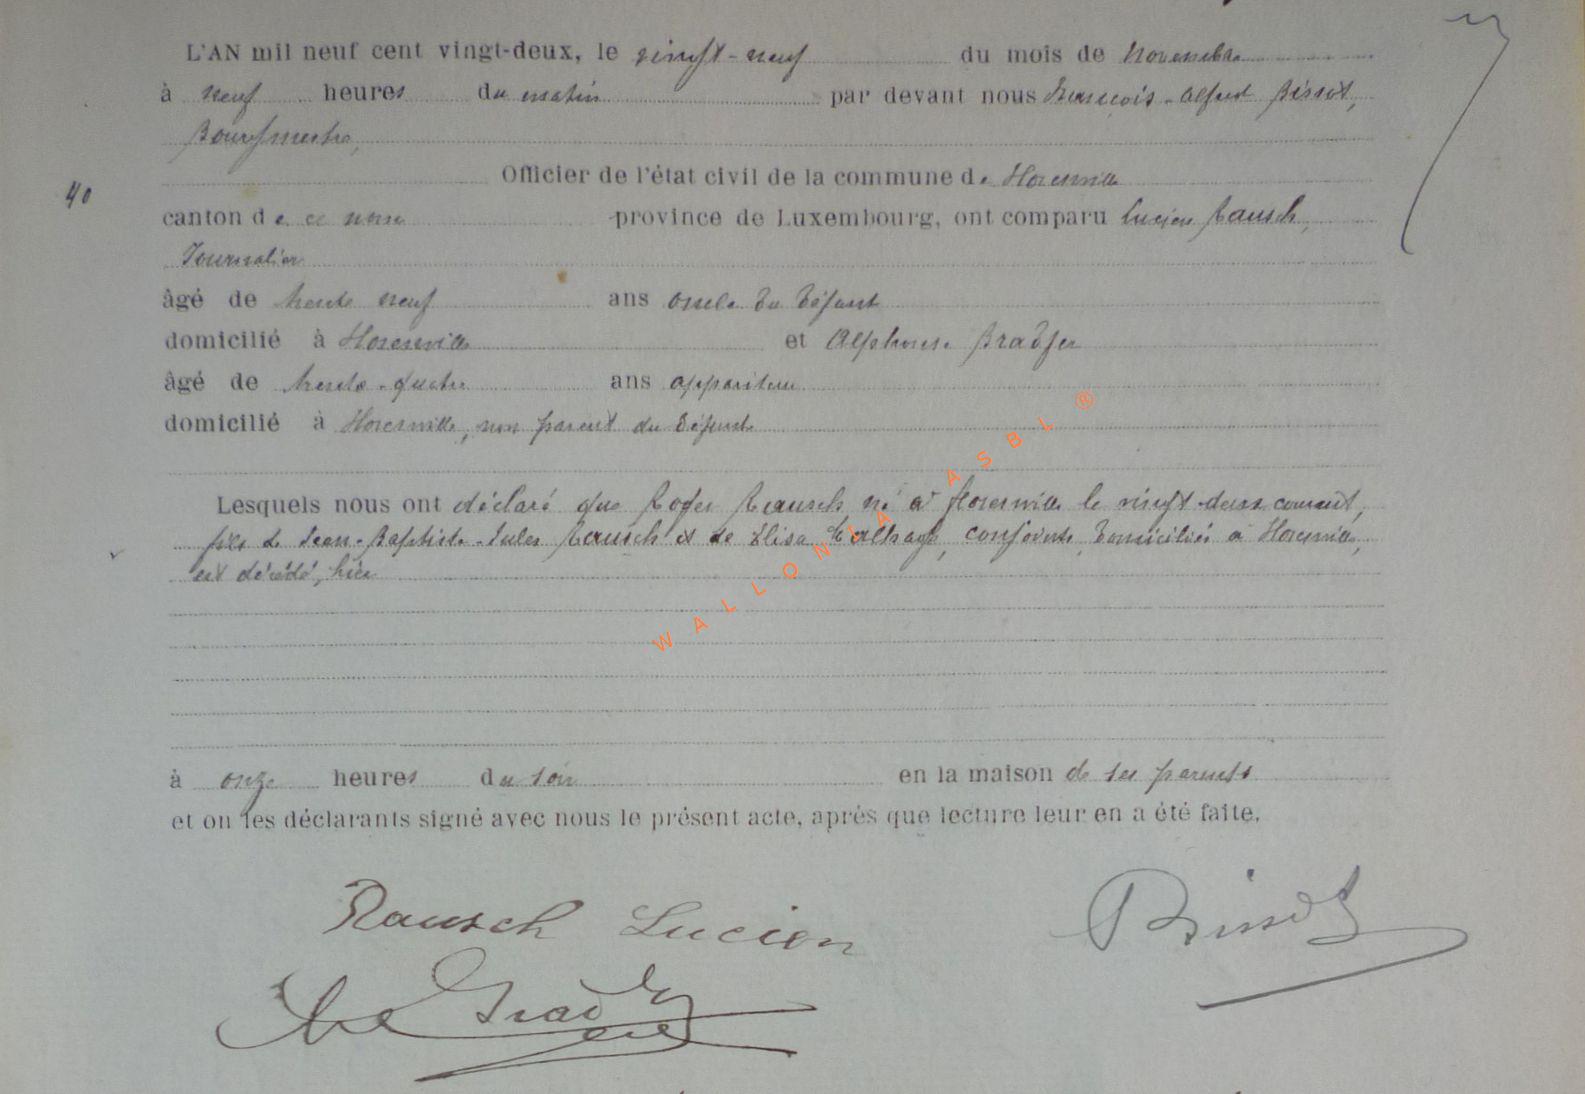 L'AN mil neuf cent vingt-deux, le vingt-neuf du mois de novembre
à neuf heures du matin par devant nous François-Alfred Bissot,
Bourgmestre,
Officier de l'état civil de la commune de Florenville
40
canton de ce nom province de Luxembourg, ont comparu Lucien Rausch,
Journalier
âgé de trente neuf ans oncle du défunt
domicilié à Florenville et Alphonse Bradfer
âgé de trente-quatre ans appariteur
domicilié à Florenville, non parent du défunt
Lesquels nous ont déclaré que Roger Rausch né à Florenville le vingt-deux courant,
fils de Jean-Baptiste-Jules Rausch et de Elisa, conjoints domiciliés à Florenville,
est décédé, hier
à onze heures du soir en la maison de ses parents
et on les déclarants signé avec nous le présent acte, après que lecture leur en a été faite.
Rausch Lucien
Bissot
WALLONIA ASBL ®